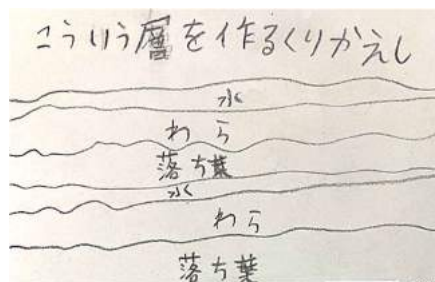 こういう層を作るくりかえし
水
わら
落ち葉
水
わら
落ち葉